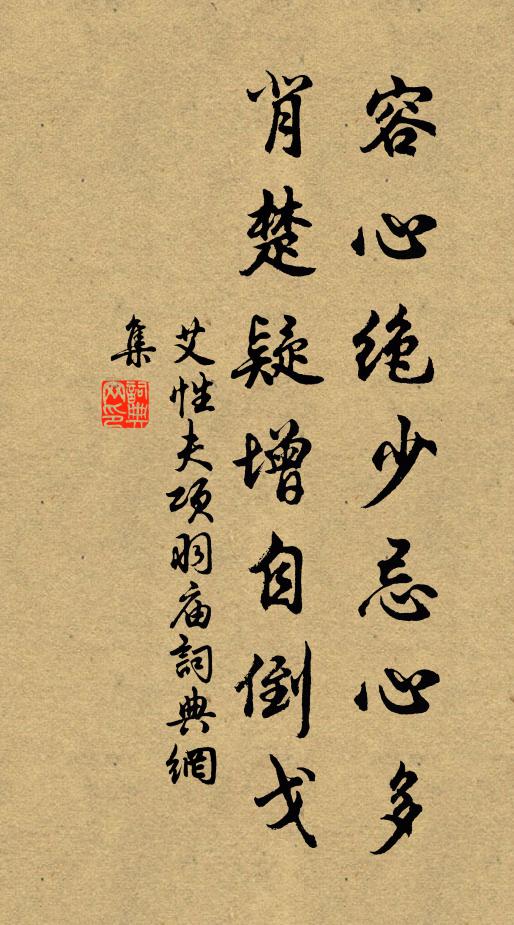 容心绝少忌心多
肖楚疑增自倒戈
艾性夫项羽庙詞典網
集
詞典
网印